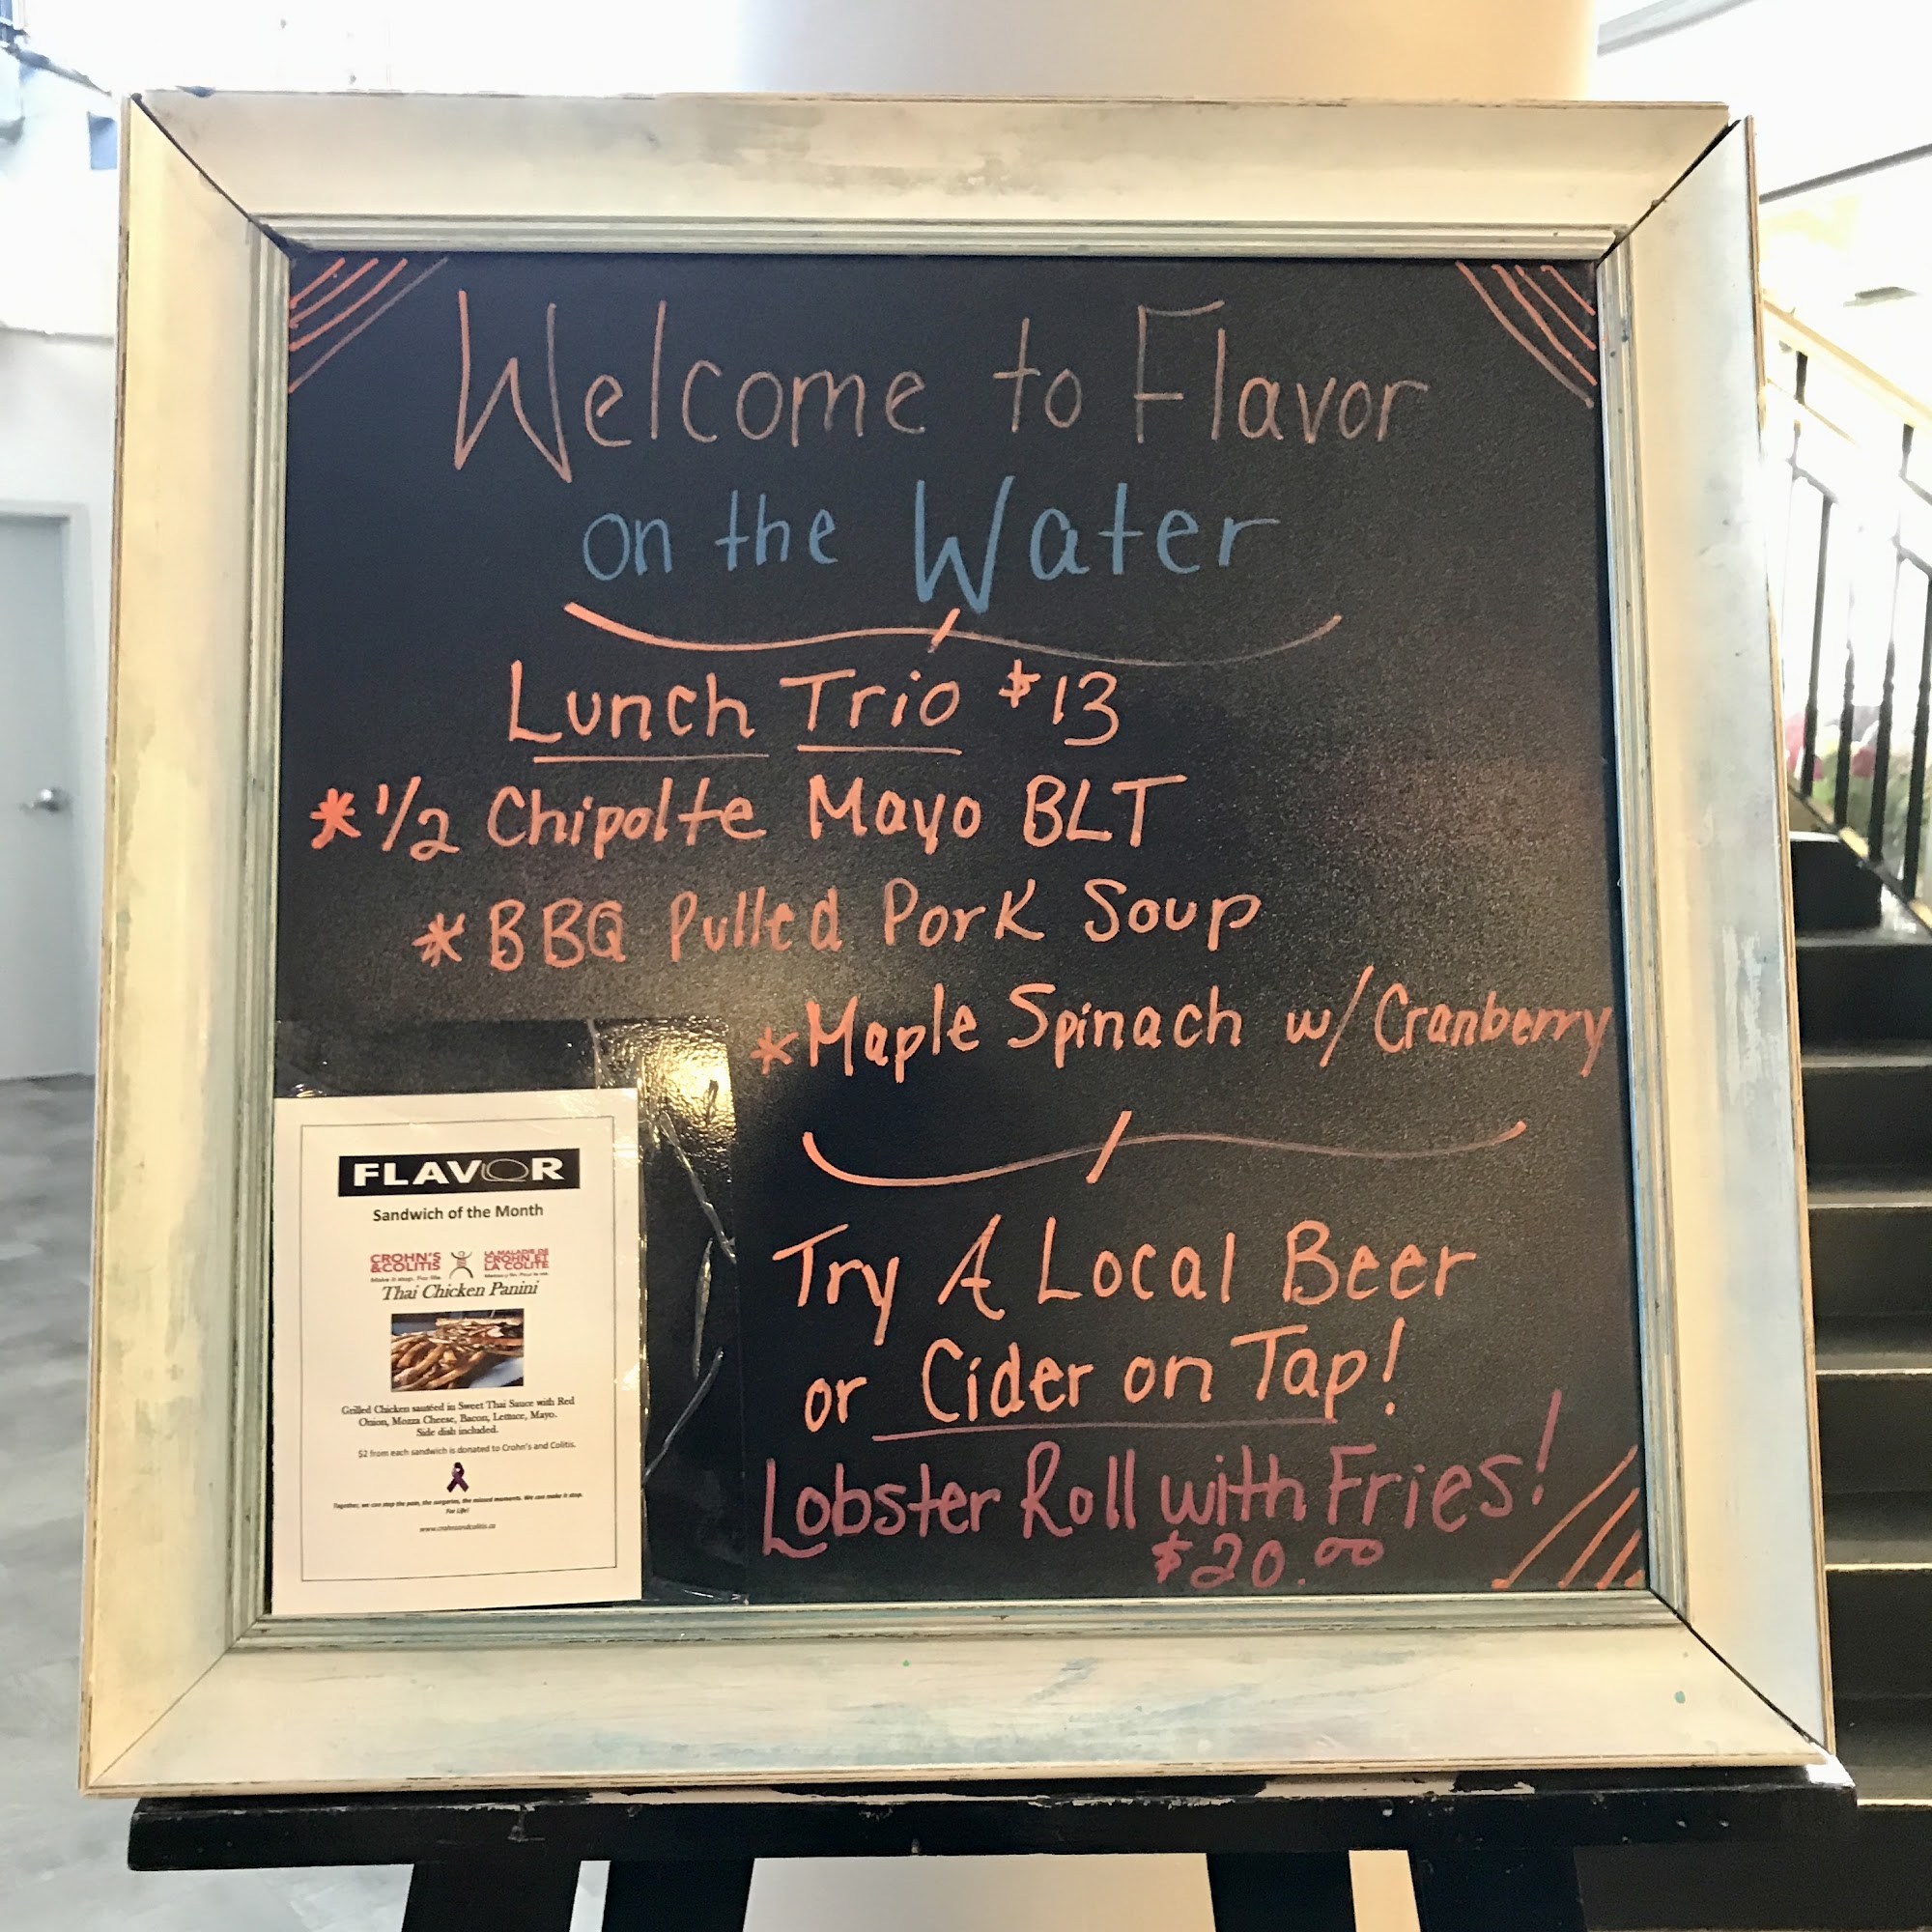 Welcome to Flavor
on the Water
Lunch Trio $13
*1/2 Chipolte Mayo BLT
*BBQ Pulled Pork Soup
*Maple Spinach w/Cranberry
Try A Local Beer
or Cider on Tap!
Lobster Roll with Fries!
$20.00
FLAVOR
Sandwich of the Month
CROHN'S
&COLITIS
Make it stop. For life.
LA MALADIE DE
CROHN ET
LA COLITE
Thai Chicken Panini
Grilled Chicken sautéed in Sweet Thai Sauce with Red
Onion, Mozza Cheese, Bacon, Lettuce, Mayo.
Side dish included.
$2 from each sandwich is donated to Crohn's and Colitis.
Together, we can stop the pain, the surgeries, the missed moments. We can make it stop.
For Life!
www.crohnsandcolitis.ca